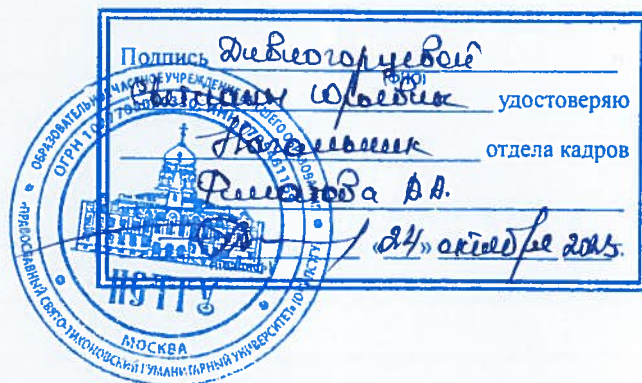 Подпись Дивногорцевой
(ФИО)
Светланы Юрьевны удостоверяю
Начальник отдела кадров
Филатова
«24» октября 2025.
ОБРАЗОВАТЕЛЬНОЕ ЧАСТНОЕ УЧРЕЖДЕНИЕ ВЫСШЕГО ОБРАЗОВАНИЯ
«ПРАВОСЛАВНЫЙ СВЯТО-ТИХОНОВСКИЙ ГУМАНИТАРНЫЙ УНИВЕРСИТЕТ»
ОГРН
ПСТГУ
МОСКВА